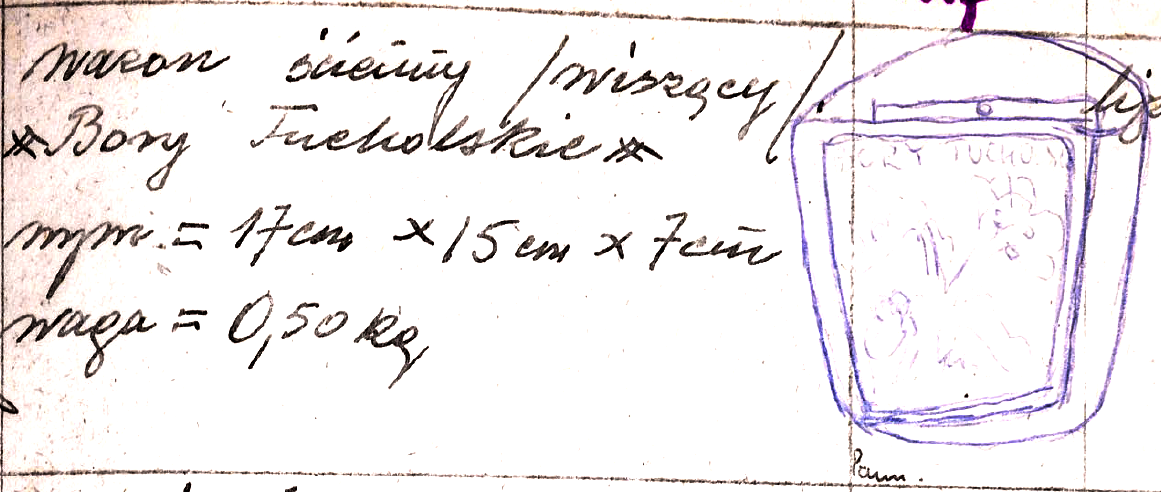 wazon ścienny /wiszący/.
*Bory Tucholskie*
wym. = 17cm x 15cm x 7cm
waga = 0,50 kg
BORY TUCHOL